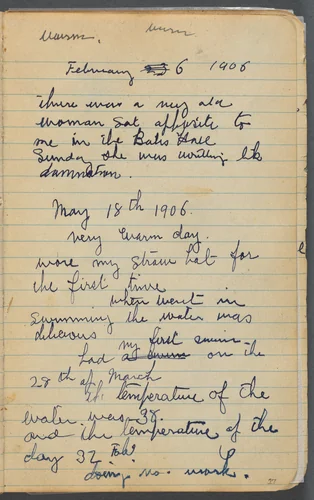 warm. warm
February 6 1906
there was a very old
woman sat opposite to
me in the Bates Hall
Sunday she was writing like
damnation.
May 18th 1906.
very warm day.
wore my straw hat for
the first time
when went in
swimming the water was
delicious
had my first swim on the
28th of March
the temperature of the
water was 38.
and the temperature of the
day 32
doing no. work.